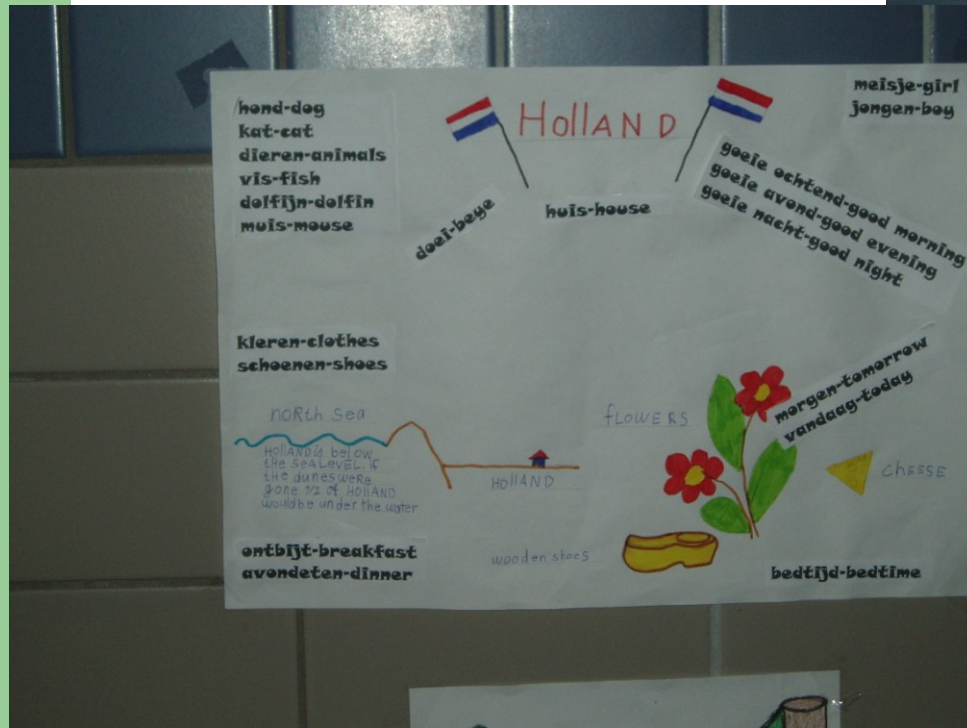 hond-dog
kat-cat
dieren-animals
vis-fish
dolfijn-dolfin
muis-mouse
HollAND
meisje-girl
jongen-boy
doei-beye
huis-house
goeie ochtend-good morning
goeie avond-good evening
goeie nacht-good night
kleren-clothes
schoenen-shoes
noRth sea
HOllAND is below
the SeALEVEL. if
the dunes were
gone 1/2 of HOllAND
would be under the water
HOllAND
flOWERS
morgen-tomorrow
vandaag-today
CHEESE
ontbijt-breakfast
avondeten-dinner
wooden shoes
bedtijd-bedtime